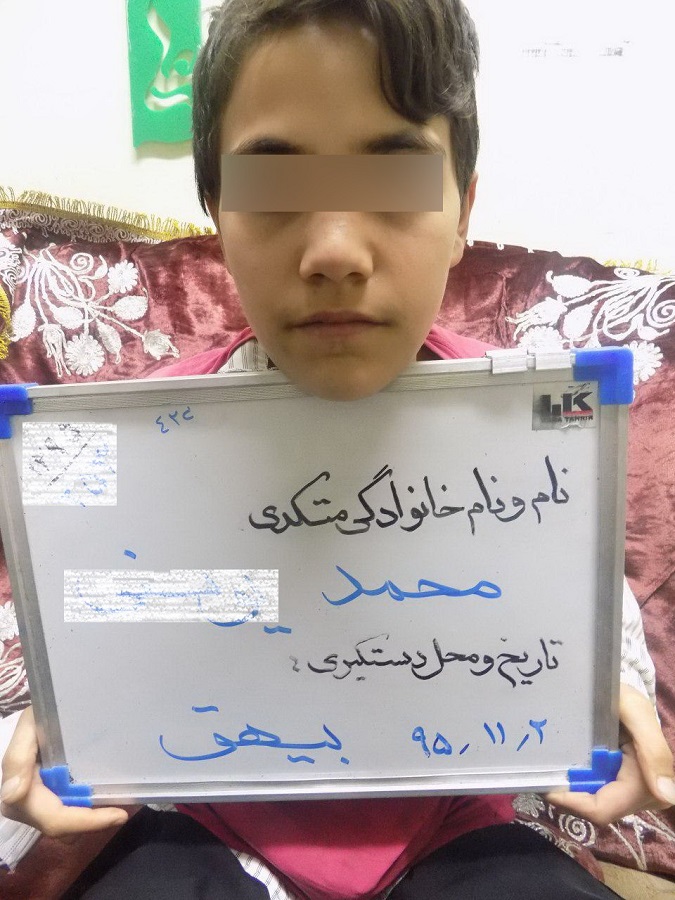 ۴۲۵
TAHRIR
نام و نام خانوادگی متکدی
محمد
تاریخ و محل دستگیری :
۹۵/۱۱/۲ بیهق